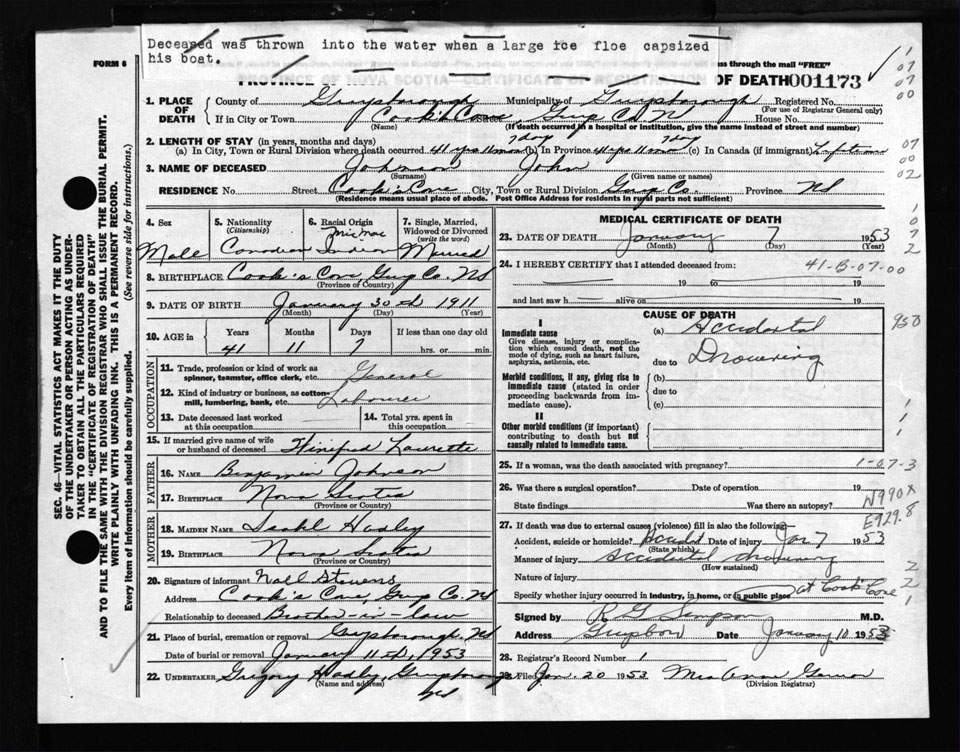 Deceased was thrown into the water when a large ice floe capsized
his boat.
FORM 6
ss through the mail "FREE"
PROVINCE OF NOVA SCOTIA—CERTIFICATE OF REGISTRATION OF DEATH 001173
1. PLACE OF DEATH
County of Guysborough Municipality of Guysborough Registered No.
(For use of Registrar General only)
If in City or Town Cook's Cove Street Guys Co. N.S. House No.
(Name) (If death occurred in a hospital or institution, give the name instead of street and number)
2. LENGTH OF STAY (in years, months and days) 7 days 7 days
(a) In City, Town or Rural Division where death occurred 41 yrs 11 mos (b) In Province 41 yrs 11 mos (c) In Canada (if immigrant) Lifetime
3. NAME OF DECEASED Johnson John
(Surname) (Given name or names)
RESIDENCE No. Street Cook's Cove City, Town or Rural Division Guys Co. Province NS
(Residence means usual place of abode. Post Office Address for residents in rural parts not sufficient)
4. Sex
Male
5. Nationality
(Citizenship)
Canadian
6. Racial Origin
MicMac
Indian
7. Single, Married, Widowed or Divorced
(write the word)
Married
8. BIRTHPLACE Cook's Cove, Guys Co. NS
(Province or Country)
9. DATE OF BIRTH January 30th 1911
(Month) (Day) (Year)
10. AGE in
Years Months Days If less than one day old
41 11 7 hrs. or min.
OCCUPATION
11. Trade, profession or kind of work as
spinner, teamster, office clerk, etc. General
12. Kind of industry or business, as cotton-
mill, lumbering, bank, etc. Labourer
13. Date deceased last worked
at this occupation
14. Total yrs. spent in
this occupation
15. If married give name of wife
or husband of deceased Winifred Laurette
FATHER
16. NAME Benjamin Johnson
17. BIRTHPLACE Nova Scotia
(Province or Country)
MOTHER
18. MAIDEN NAME Hadley
19. BIRTHPLACE Nova Scotia
(Province or Country)
20. Signature of informant Stevens
Address Cook's Cove, Guys Co. NS
Relationship to deceased Brother-in-law
21. Place of burial, cremation or removal Guysborough, NS
Date of burial or removal January 11th, 1953
22. UNDERTAKER Gregory Hadley, Guysborough
(Name and address) NS
MEDICAL CERTIFICATE OF DEATH
23. DATE OF DEATH January 7 1953
(Month) (Day) (Year)
24. I HEREBY CERTIFY that I attended deceased from: 41-B-07-00
19 to 19
and last saw h alive on 19
CAUSE OF DEATH
I
Immediate cause (a) Accidental
Give disease, injury or complica-
tion which caused death, not the
mode of dying, such as heart failure,
asphyxia, asthenia, etc.
due to Drowning
Morbid conditions, if any, giving rise to
immediate cause (stated in order
proceeding backwards from im-
mediate cause).
(b)
due to
(c)
II
Other morbid conditions (if important)
contributing to death but not
causally related to immediate cause.
25. If a woman, was the death associated with pregnancy? 1-07-3
26. Was there a surgical operation? Date of operation 19
State findings Was there an autopsy?
N990X
E929.8
27. If death was due to external causes (violence) fill in also the following—
Accident, suicide or homicide? Accident Date of injury Jan 7 1953
(State which)
Manner of injury accidental drowning
(How sustained)
Nature of injury
Specify whether injury occurred in industry, in home, or in public place at Cook's Cove
Signed by R G Simpson M.D.
Address Date January 10 1953
28. Registrar's Record Number 1
Filed Jan. 20 1953 Mrs Anna
(Division Registrar)
SEC. 46—VITAL STATISTICS ACT MAKES IT THE DUTY
OF THE UNDERTAKER OR PERSON ACTING AS UNDER-
TAKER TO OBTAIN ALL THE PARTICULARS REQUIRED
IN THE "CERTIFICATE OF REGISTRATION OF DEATH"
AND TO FILE THE SAME WITH THE DIVISION REGISTRAR WHO SHALL ISSUE THE BURIAL PERMIT.
WRITE PLAINLY WITH UNFADING INK. THIS IS A PERMANENT RECORD.
Every item of information should be carefully supplied. (See reverse side for instructions.)